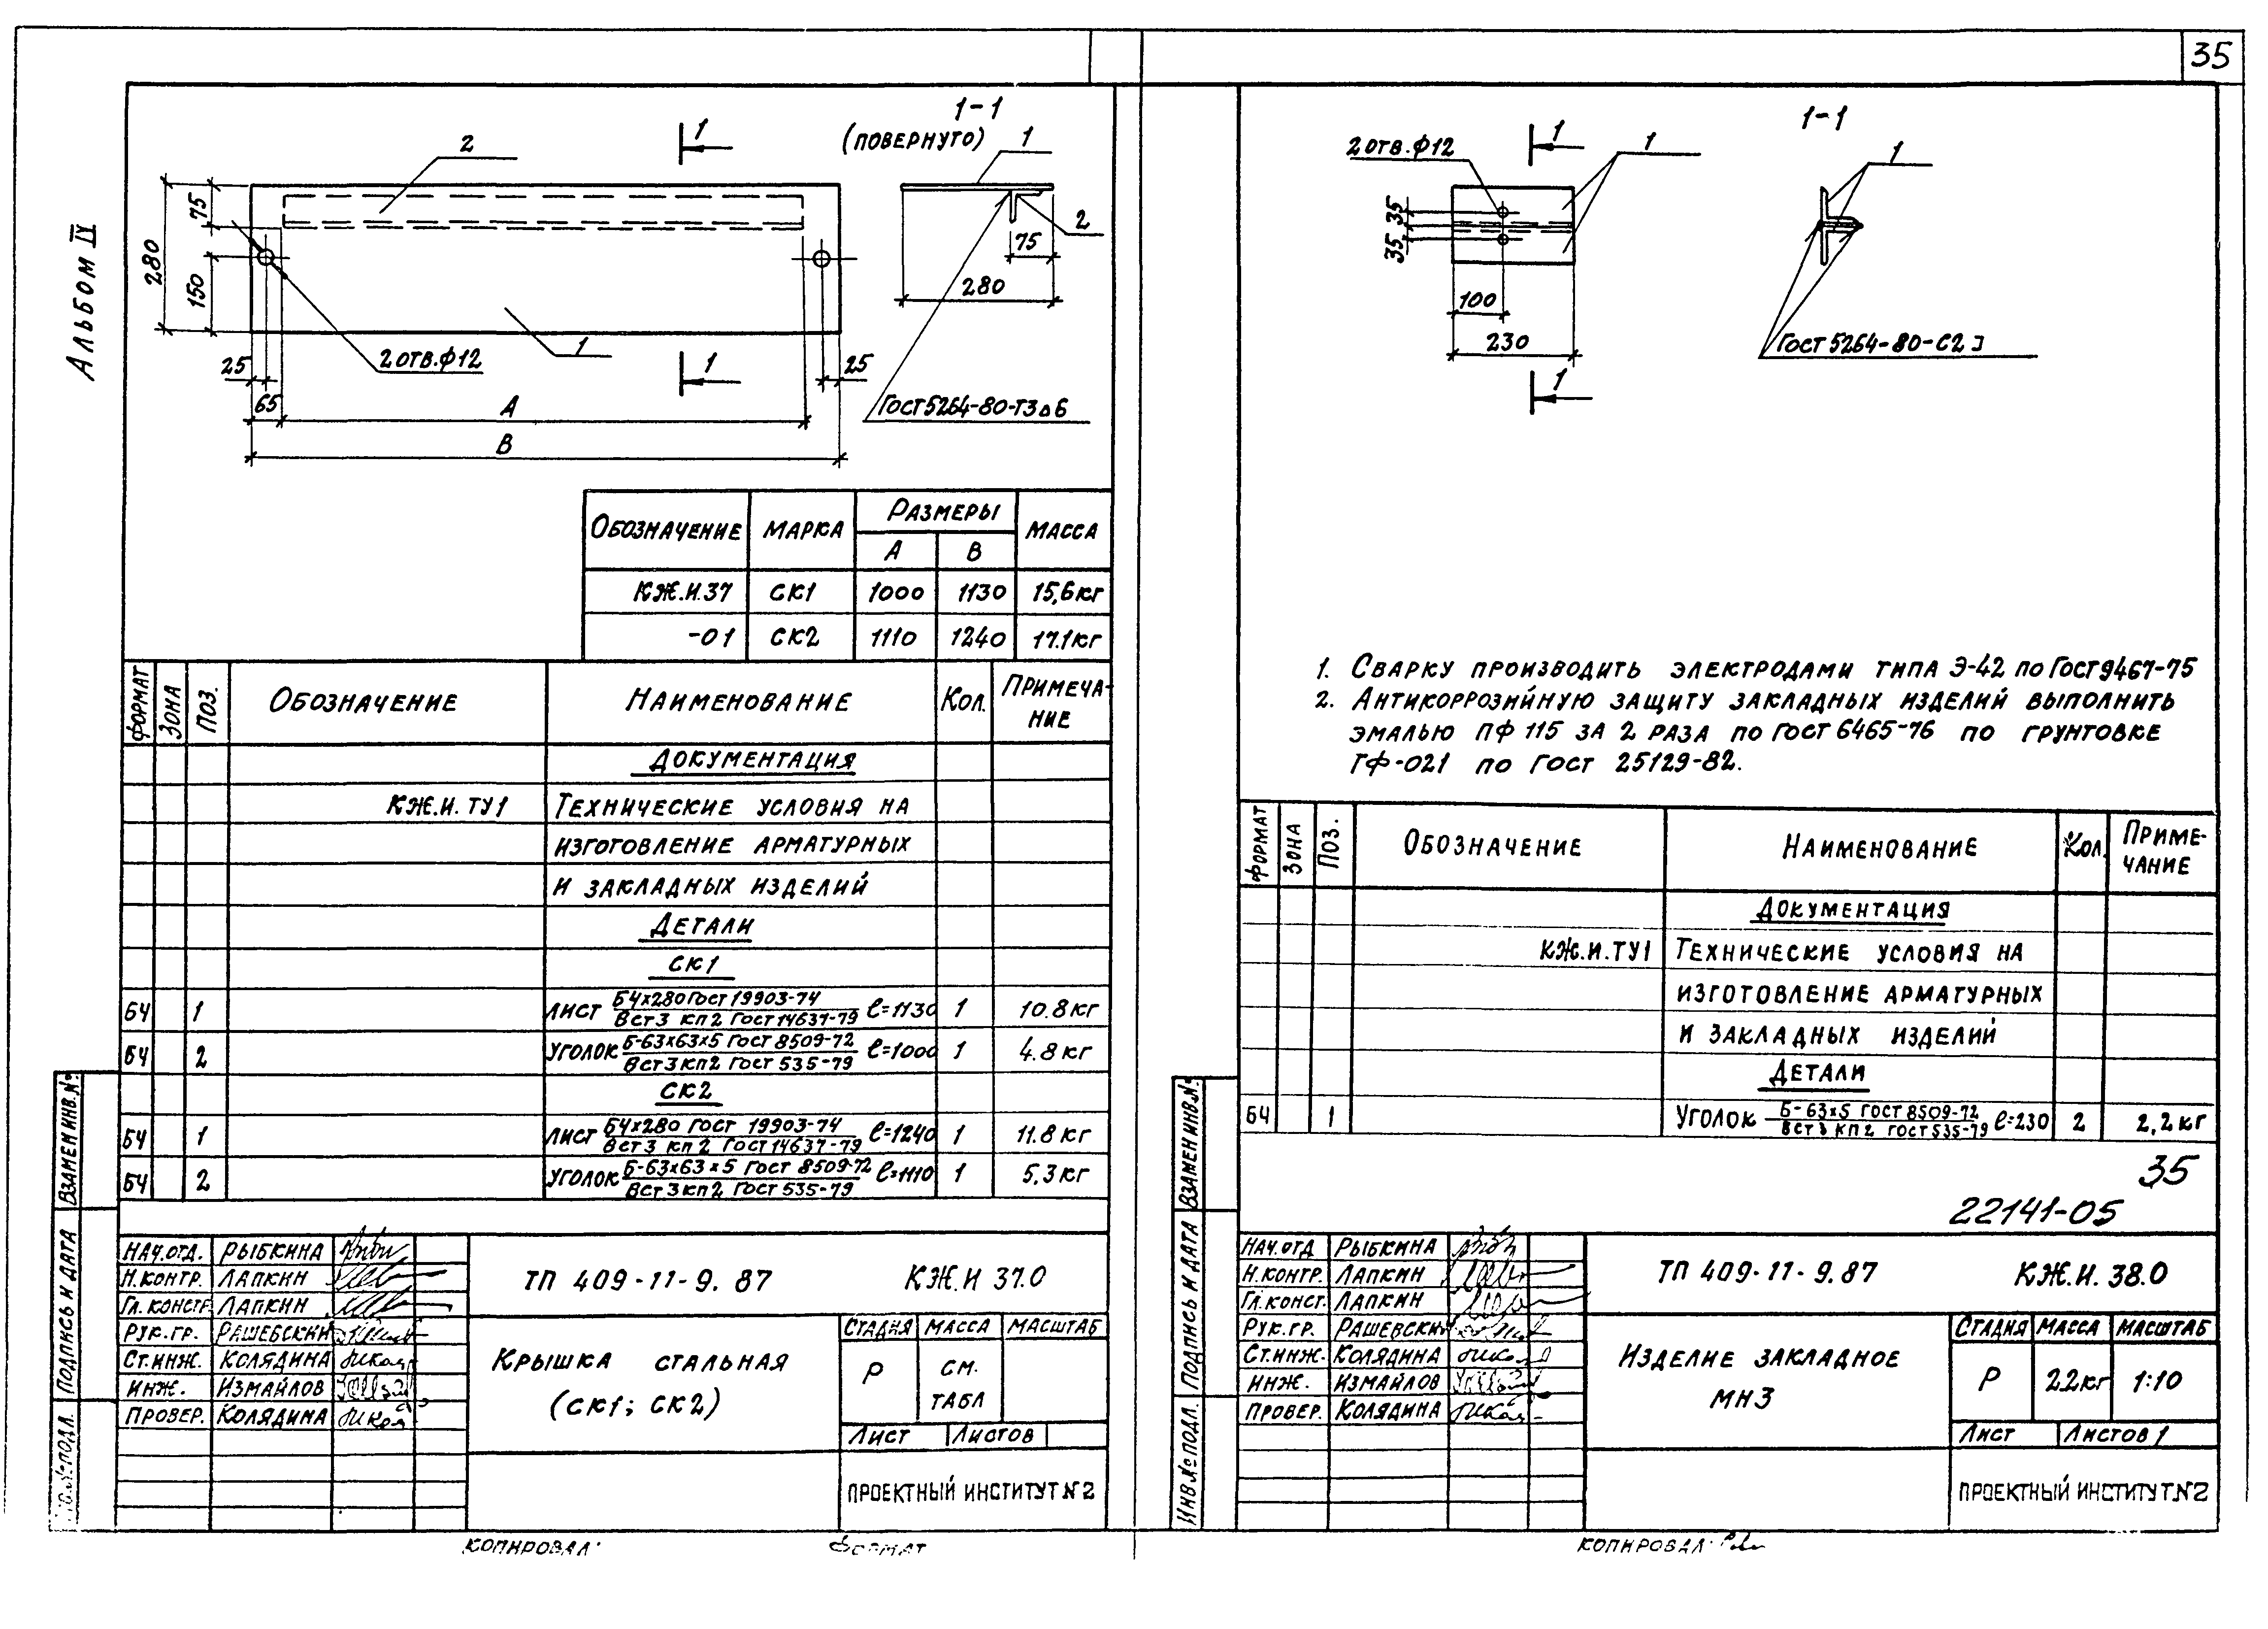 35
Альбом IV
1-1
(повернуто)
1
2
1
1
2
75
280
150
75
280
25
2 отв. ф12
1
1
25
65
А
В
Гост 5264-80-Т3⊿6
Обозначение
Марка
Размеры
Масса
А
В
КЖ.И.37
СК1
1000
1130
15,6кг
-01
СК2
1110
1240
17.1кг
Формат
Зона
Поз.
Обозначение
Наименование
Кол.
Примеча-
ние
Документация
КЖ.И.ТУ1
Технические условия на
изготовление арматурных
и закладных изделий
Детали
СК1
БЧ 1 Лист Б4х280 Гост 19903-74 ℓ=1130 1 10.8 кг
ВСт3 кп2 Гост 14637-79
БЧ 2 Уголок Б-63х63х5 Гост 8509-72 ℓ=1000 1 4.8 кг
ВСт3кп2 Гост 535-79
СК2
БЧ 1 Лист Б4х280 Гост 19903-74 ℓ=1240 1 11.8 кг
ВСт3 кп2 Гост 14637-79
БЧ 2 Уголок Б-63х63х5 Гост 8509-72 ℓ=1110 1 5,3 кг
ВСт3кп2 Гост 535-79
Взамен инв.№
Подпись и дата
подл.
Нач.отд. Рыбкина
Н.контр. Лапкин
Гл.констр. Лапкин
Рук.гр. Рашевский
Ст.инж. Колядина
Инж. Измайлов
Провер. Колядина
ТП 409-11-9.87
КЖ.И 37.0
Крышка стальная
(СК1; СК2)
Стадия
Масса
Масштаб
Р
см.
табл
Лист
Листов
Проектный институт №2
Копировал:
Формат
1-1
2 отв. ф12
1
1
1
35
35
100
230
1
Гост 5264-80-С2
1. Сварку производить электродами типа Э-42 по Гост 9467-75
2. Антикоррозийную защиту закладных изделий выполнить
эмалью ПФ 115 за 2 раза по Гост 6465-76 по грунтовке
ГФ-021 по Гост 25129-82.
Формат
Зона
Поз.
Обозначение
Наименование
Кол.
Приме-
чание
Документация
КЖ.И.ТУ1
Технические условия на
изготовление арматурных
и закладных изделий
Детали
БЧ 1 Уголок Б-63х5 Гост 8509-72 ℓ=230 2 2,2 кг
ВСт3 кп2 Гост 535-79
35
22141-05
Взамен инв.№
Подпись и дата
Инв.№ подл.
Нач.отд Рыбкина
Н.контр. Лапкин
Гл.конст. Лапкин
Рук.гр. Рашевский
Ст.инж. Колядина
Инж. Измайлов
Провер. Колядина
ТП 409-11-9.87
КЖ.И. 38.0
Изделие закладное
МН3
Стадия
Масса
Масштаб
Р
2.2кг
1:10
Лист
Листов 1
Проектный институт №2
Копировал: